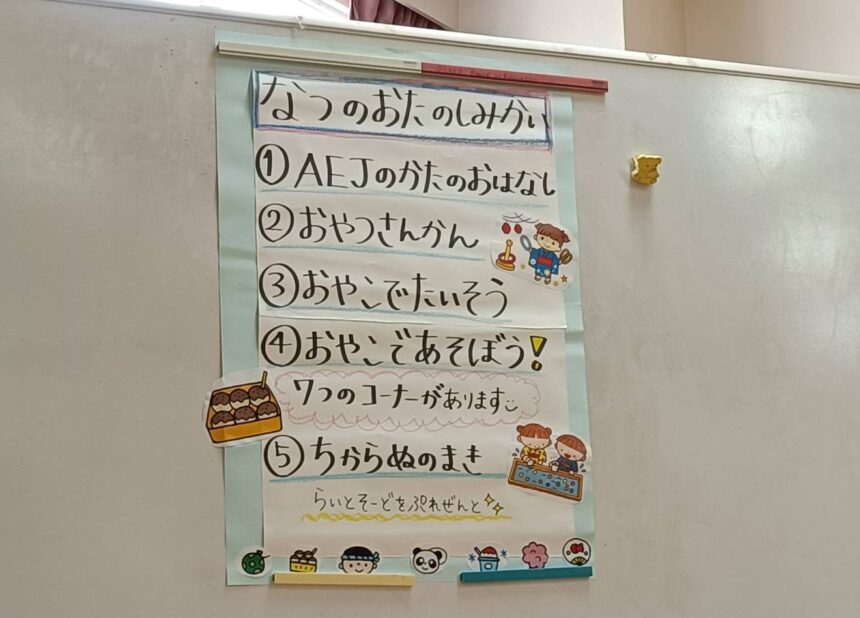 なつのおたのしみかい
①AEJのかたのおはなし
②おやつさんかん
③おやこでたいそう
④おやこであそぼう!
7つのコーナーがあります
⑤ちからぬのまき
らいとそーどをぷれぜんと